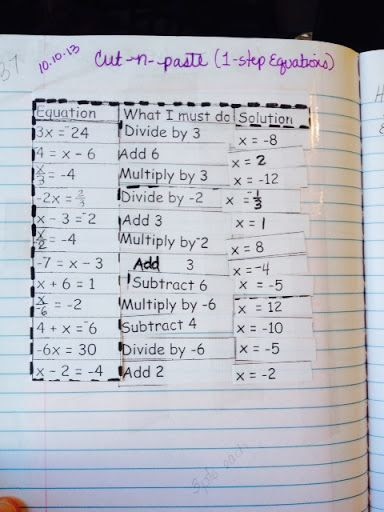 10.10.13 Cut-n-paste (1-step Equations)
Equation What I must do Solution
3x = ⁻24 Divide by 3 x = -8
4 = x - 6 Add 6 x = 2
x/3 = -4 Multiply by 3 x = -12
-2x = 2/3 Divide by -2 x = -1/3
x - 3 = ⁻2 Add 3 x = 1
x/⁻2 = -4 Multiply by ⁻2 x = 8
-7 = x - 3 Add 3 x = -4
x + 6 = 1 Subtract 6 x = -5
x/-6 = -2 Multiply by -6 x = 12
4 + x = ⁻6 Subtract 4 x = -10
-6x = 30 Divide by -6 x = -5
x - 2 = -4 Add 2 x = -2